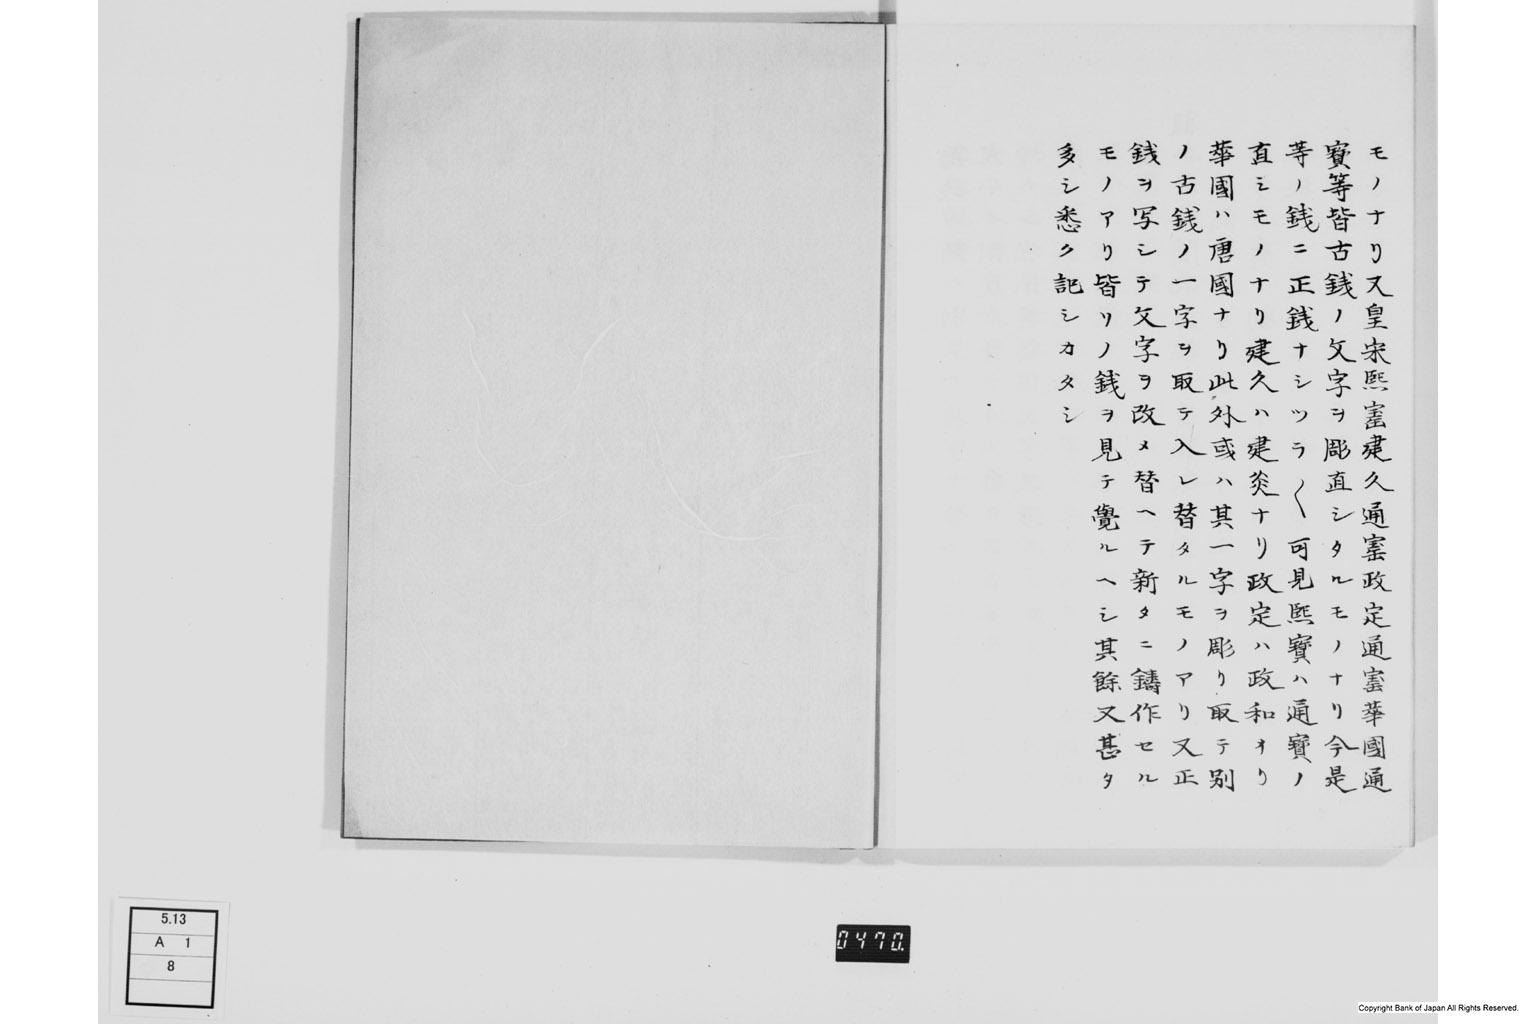 モノナリ又皇宋熙寳建久通寳政定通寳華國通
寳等皆古銭ノ文字ヲ彫直シタルモノナリ今是
等ノ銭ニ正銭ナシツラ〱可見熙寳ハ通寳ノ
直シモノナリ建久ハ建炎ナリ政定ハ政和ナリ
華國ハ唐國ナリ此外或ハ其一字ヲ彫リ取テ别
ノ古銭ノ一字ヲ取テ入レ替タルモノアリ又正
銭ヲ写シテ文字ヲ改メ替ヘテ新タニ鑄作セル
モノアリ皆リノ銭ヲ見テ覺ルヘシ其餘又甚タ
多シ悉ク記シカタシ
5.13
A 1
8
0470.
Copyright Bank of Japan All Rights Reserved.